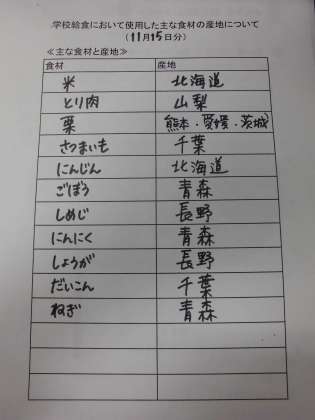 学校給食において使用した主な食材の産地について
（11月15日分）
≪主な食材と産地≫
食材 産地
米 北海道
とり肉 山梨
栗 熊本・愛媛・茨城
さつまいも 千葉
にんじん 北海道
ごぼう 青森
しめじ 長野
にんにく 青森
しょうが 長野
だいこん 千葉
ねぎ 青森